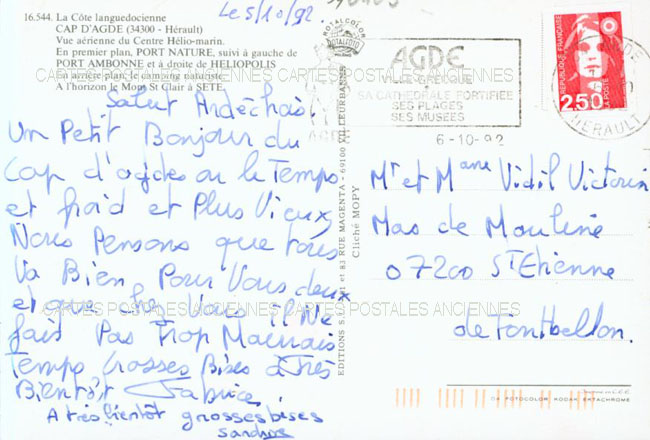 16.544. La Côte languedocienne
CAP D'AGDE (34300 - Hérault)
Vue aérienne du Centre Hélio-marin.
En premier plan, PORT NATURE, suivi à gauche de
PORT AMBONNE et à droite de HELIOPOLIS
En arrière plan, le camping naturiste.
A l'horizon le Mont St Clair à SETE.
Le 5/10/92.
Salut Ardéchois.
Un Petit Bonjour du
Cap d'agdes ou le Temps
et froid et Plus Vieux,
Nous Pensons que tous
Va Bien Pour Vous deux
et que chez Vous il Ne
fait Pas Trop Mauvais
Temps Grosses Bises à Très
Bientôt Fabrice
A très bientôt grosses bises
sandrine
ROTALCOLOR
ROTALFOTO
AGDE
VILLE GRECQUE
SA CATHÉDRALE FORTIFIÉE
SES PLAGES
SES MUSÉES
6-10-92
HERAULT
REPUBLIQUE FRANÇAISE
2,50
LA POSTE
RUE MAGENTA - 69100 VILLEURBANNE
Cliché MOPY
Mr et Mame Vidil Victorin
Mas de Mouline
07200 St Etienne
de Fontbellon.
PHOTOCOLOR KODAK EKTACHROME
CARTES POSTALES ANCIENNES CARTES POSTALES ANCIENNES
CARTES POSTALES ANCIENNES CARTES POSTALES ANCIENNES